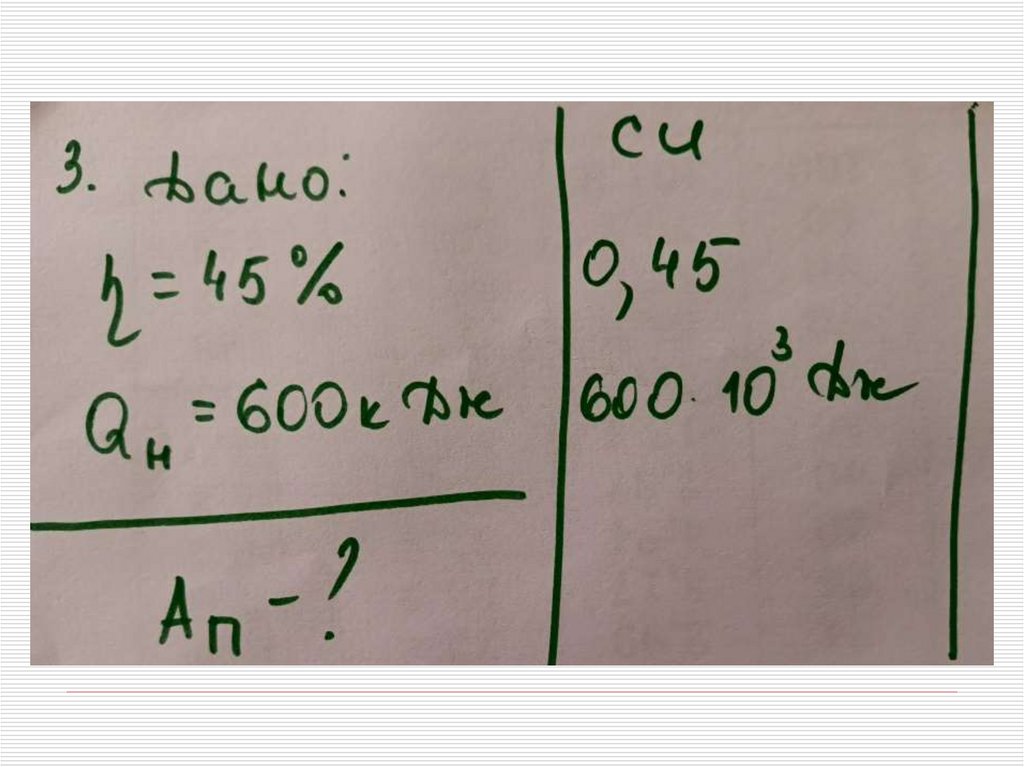 3. Дано:
η = 45%
Qн = 600 кДж
Aп - ?
СИ
0,45
600 · 10³ Дж